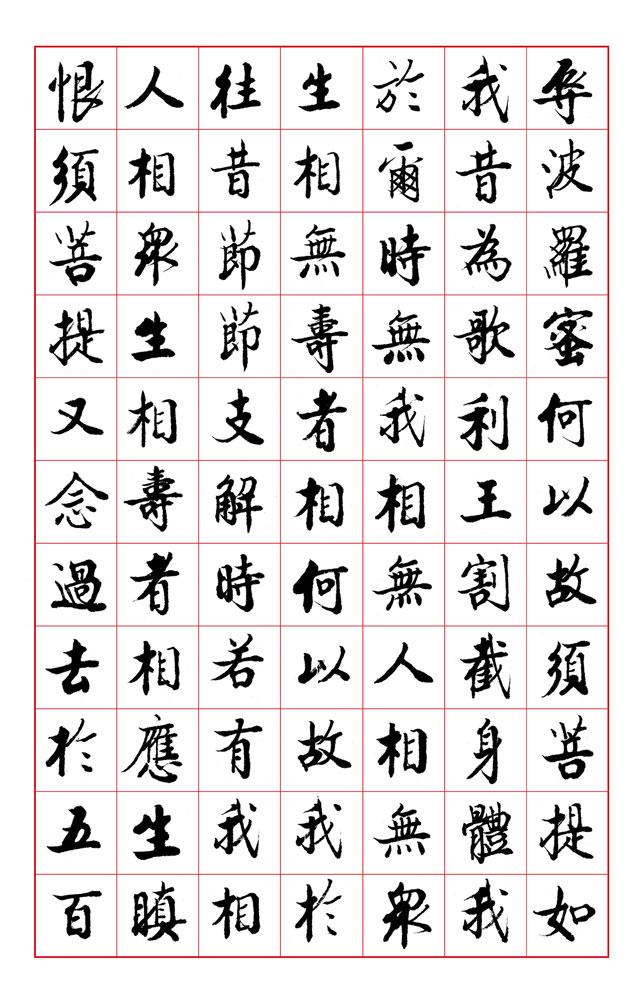 辱波羅蜜何以故須菩提如
我昔為歌利王割截身體我
於爾時無我相無人相無衆
生相無壽者相何以故我於
往昔節節支解時若有我相
人相衆生相壽者相應生瞋
恨須菩提又念過去於五百